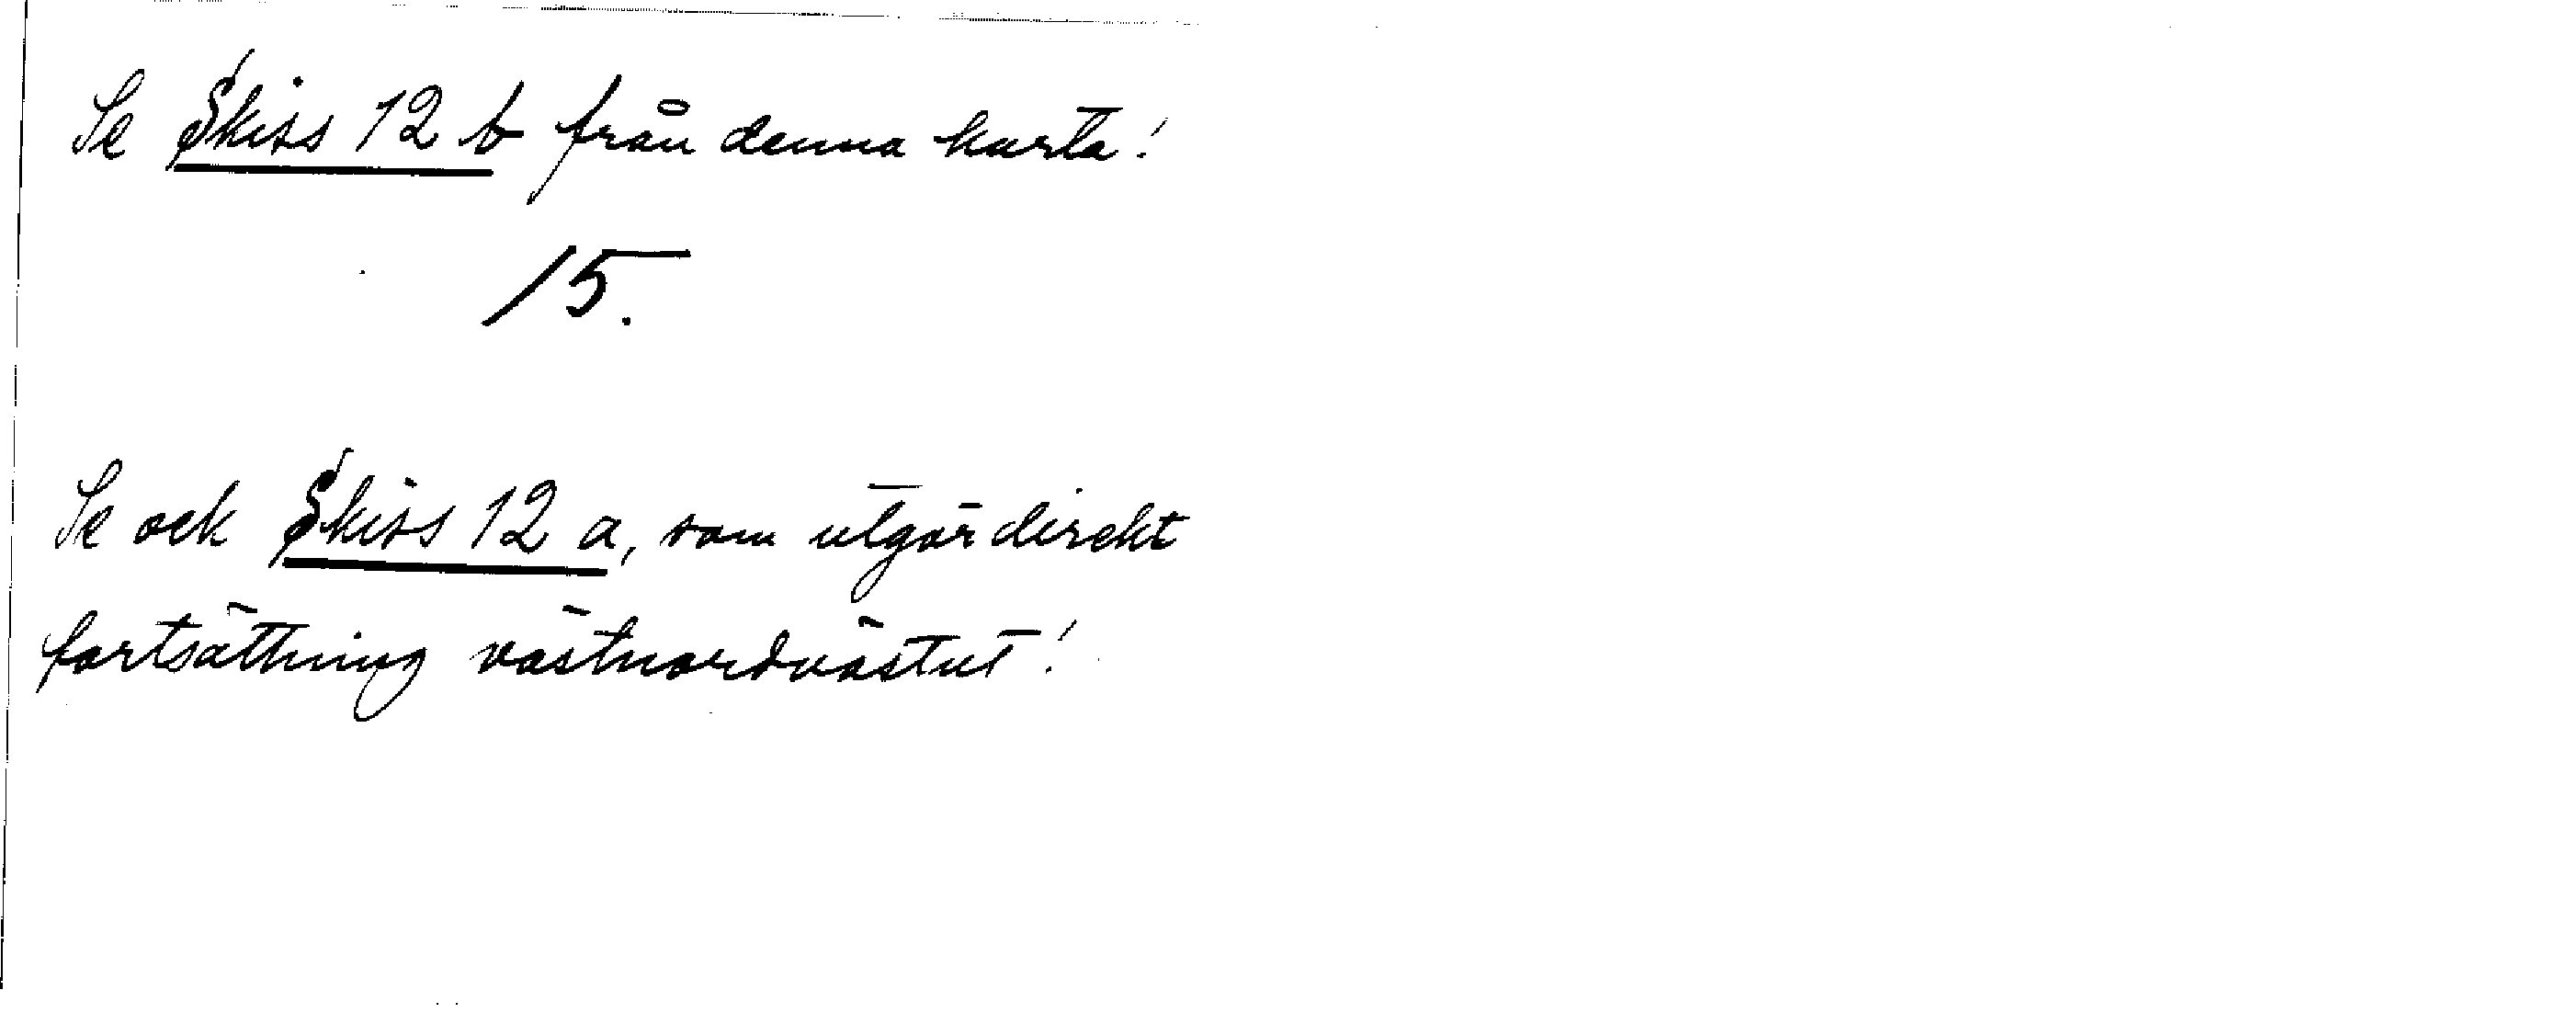 Se Skiss 12 b från denna karta!
15.
Se ock Skiss 12 a, som utgör direkt
fortsättning västnordvästut!